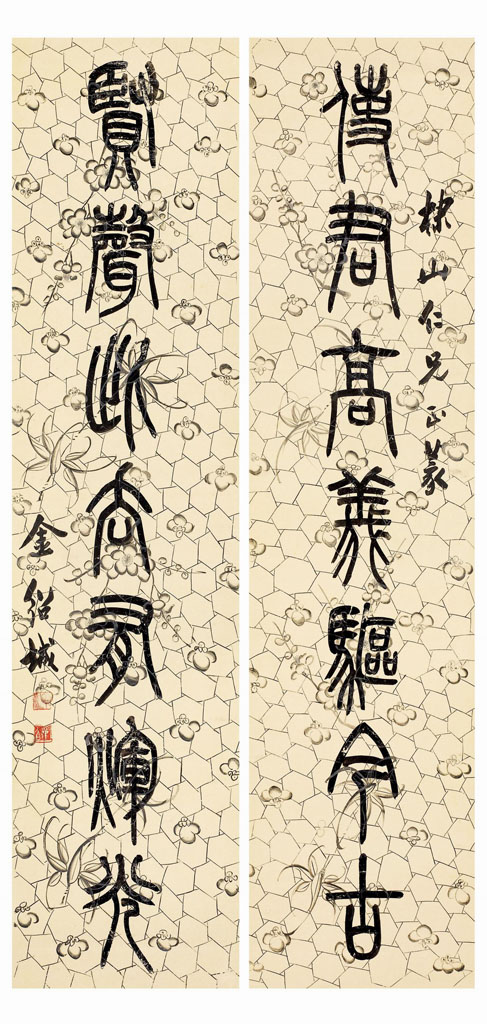 棣山仁兄正篆
使君高義驅今古
賢聲此去有輝光
金紹城